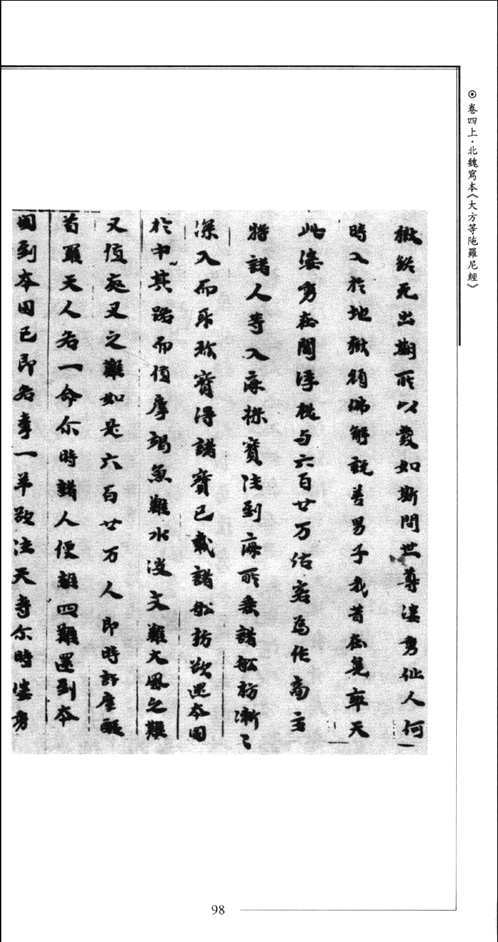 ⊙卷四上·北魏寫本《大方等陁羅尼經》
獄終无出期所以發如斯問世尊婆男仙人何
時入於地獄願佛解說善男子我昔在兜率天
此婆男在閻浮提与六百廿万估客爲作商主
將諸人等入海採寶往到海所乘諸舩舫漸〻
深入而取珍寶得諸寶已載諸舩舫欲還本国
於中其路而值摩竭魚難水波之難大風之難
又值夜叉之難如是六百廿万人即時許摩醯
首羅天人各一命尒時諸人便離四難還到本
国到本国已即各牽一羊欲往天寺尒時婆男
98